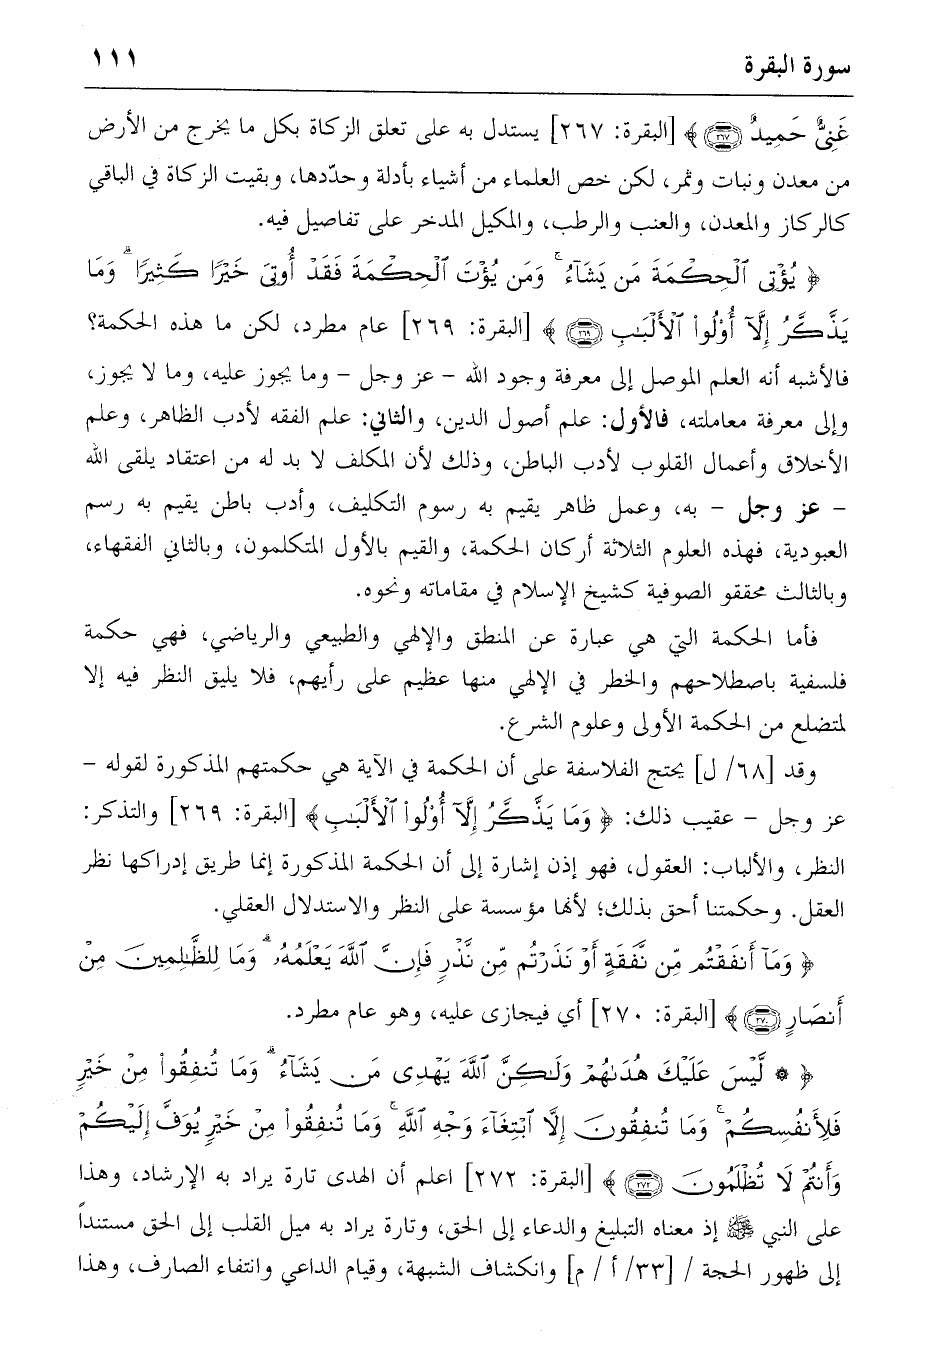 سورة البقرة ١١١
غَنِيٌّ حَمِيدٌ ﴿٢٦٧﴾ ﴾ [البقرة: ٢٦٧] يستدل به على تعلق الزكاة بكل ما يخرج من الأرض
من معدن ونبات وثمر، لكن خص العلماء من أشياء بأدلة وحدّدها، وبقيت الزكاة في الباقي
كالركاز والمعدن، والعنب والرطب، والمكيل المدخر على تفاصيل فيه.
﴿ يُؤْتِى ٱلْحِكْمَةَ مَن يَشَآءُ ۚ وَمَن يُؤْتَ ٱلْحِكْمَةَ فَقَدْ أُوتِىَ خَيْرًا كَثِيرًا ۗ وَمَا
يَذَّكَّرُ إِلَّآ أُو۟لُوا۟ ٱلْأَلْبَـٰبِ ﴿٢٦٩﴾ ﴾ [البقرة: ٢٦٩] عام مطرد، لكن ما هذه الحكمة؟
فالأشبه أنه العلم الموصل إلى معرفة وجود الله – عز وجل – وما يجوز عليه، وما لا يجوز،
وإلى معرفة معاملته، فالأول: علم أصول الدين، والثاني: علم الفقه لأدب الظاهر، وعلم
الأخلاق وأعمال القلوب لأدب الباطن، وذلك لأن المكلف لا بد له من اعتقاد يلقى الله
– عز وجل – به، وعمل ظاهر يقيم به رسوم التكليف، وأدب باطن يقيم به رسم
العبودية، فهذه العلوم الثلاثة أركان الحكمة، والقيم بالأول المتكلمون، وبالثاني الفقهاء،
وبالثالث محققو الصوفية كشيخ الإسلام في مقاماته ونحوه.
فأما الحكمة التي هي عبارة عن المنطق والإلهي والطبيعي والرياضي، فهي حكمة
فلسفية باصطلاحهم والخطر في الإلهي منها عظيم على رأيهم، فلا يليق النظر فيه إلا
لمتضلع من الحكمة الأولى وعلوم الشرع.
وقد [٦٨/ ل] يحتج الفلاسفة على أن الحكمة في الآية هي حكمتهم المذكورة لقوله –
عز وجل – عقيب ذلك: ﴿ وَمَا يَذَّكَّرُ إِلَّآ أُو۟لُوا۟ ٱلْأَلْبَـٰبِ ﴾ [البقرة: ٢٦٩] والتذكر:
النظر، والألباب: العقول، فهو إذن إشارة إلى أن الحكمة المذكورة إنما طريق إدراكها نظر
العقل. وحكمتنا أحق بذلك؛ لأنها مؤسسة على النظر والاستدلال العقلي.
﴿ وَمَآ أَنفَقْتُم مِّن نَّفَقَةٍ أَوْ نَذَرْتُم مِّن نَّذْرٍ فَإِنَّ ٱللَّهَ يَعْلَمُهُۥ ۗ وَمَا لِلظَّـٰلِمِينَ مِنْ
أَنصَارٍ ﴿٢٧٠﴾ ﴾ [البقرة: ٢٧٠] أي فيجازى عليه، وهو عام مطرد.
﴿ ۞ لَّيْسَ عَلَيْكَ هُدَىٰهُمْ وَلَـٰكِنَّ ٱللَّهَ يَهْدِى مَن يَشَآءُ ۗ وَمَا تُنفِقُوا۟ مِنْ خَيْرٍ
فَلِأَنفُسِكُمْ ۚ وَمَا تُنفِقُونَ إِلَّا ٱبْتِغَآءَ وَجْهِ ٱللَّهِ ۚ وَمَا تُنفِقُوا۟ مِنْ خَيْرٍ يُوَفَّ إِلَيْكُمْ
وَأَنتُمْ لَا تُظْلَمُونَ ﴿٢٧٢﴾ ﴾ [البقرة: ٢٧٢] اعلم أن الهدى تارة يراد به الإرشاد، وهذا
على النبي ﷺ إذ معناه التبليغ والدعاء إلى الحق، وتارة يراد به ميل القلب إلى الحق مستنداً
إلى ظهور الحجة / [٣٣/ أ / م] وانكشاف الشبهة، وقيام الداعي وانتفاء الصارف، وهذا